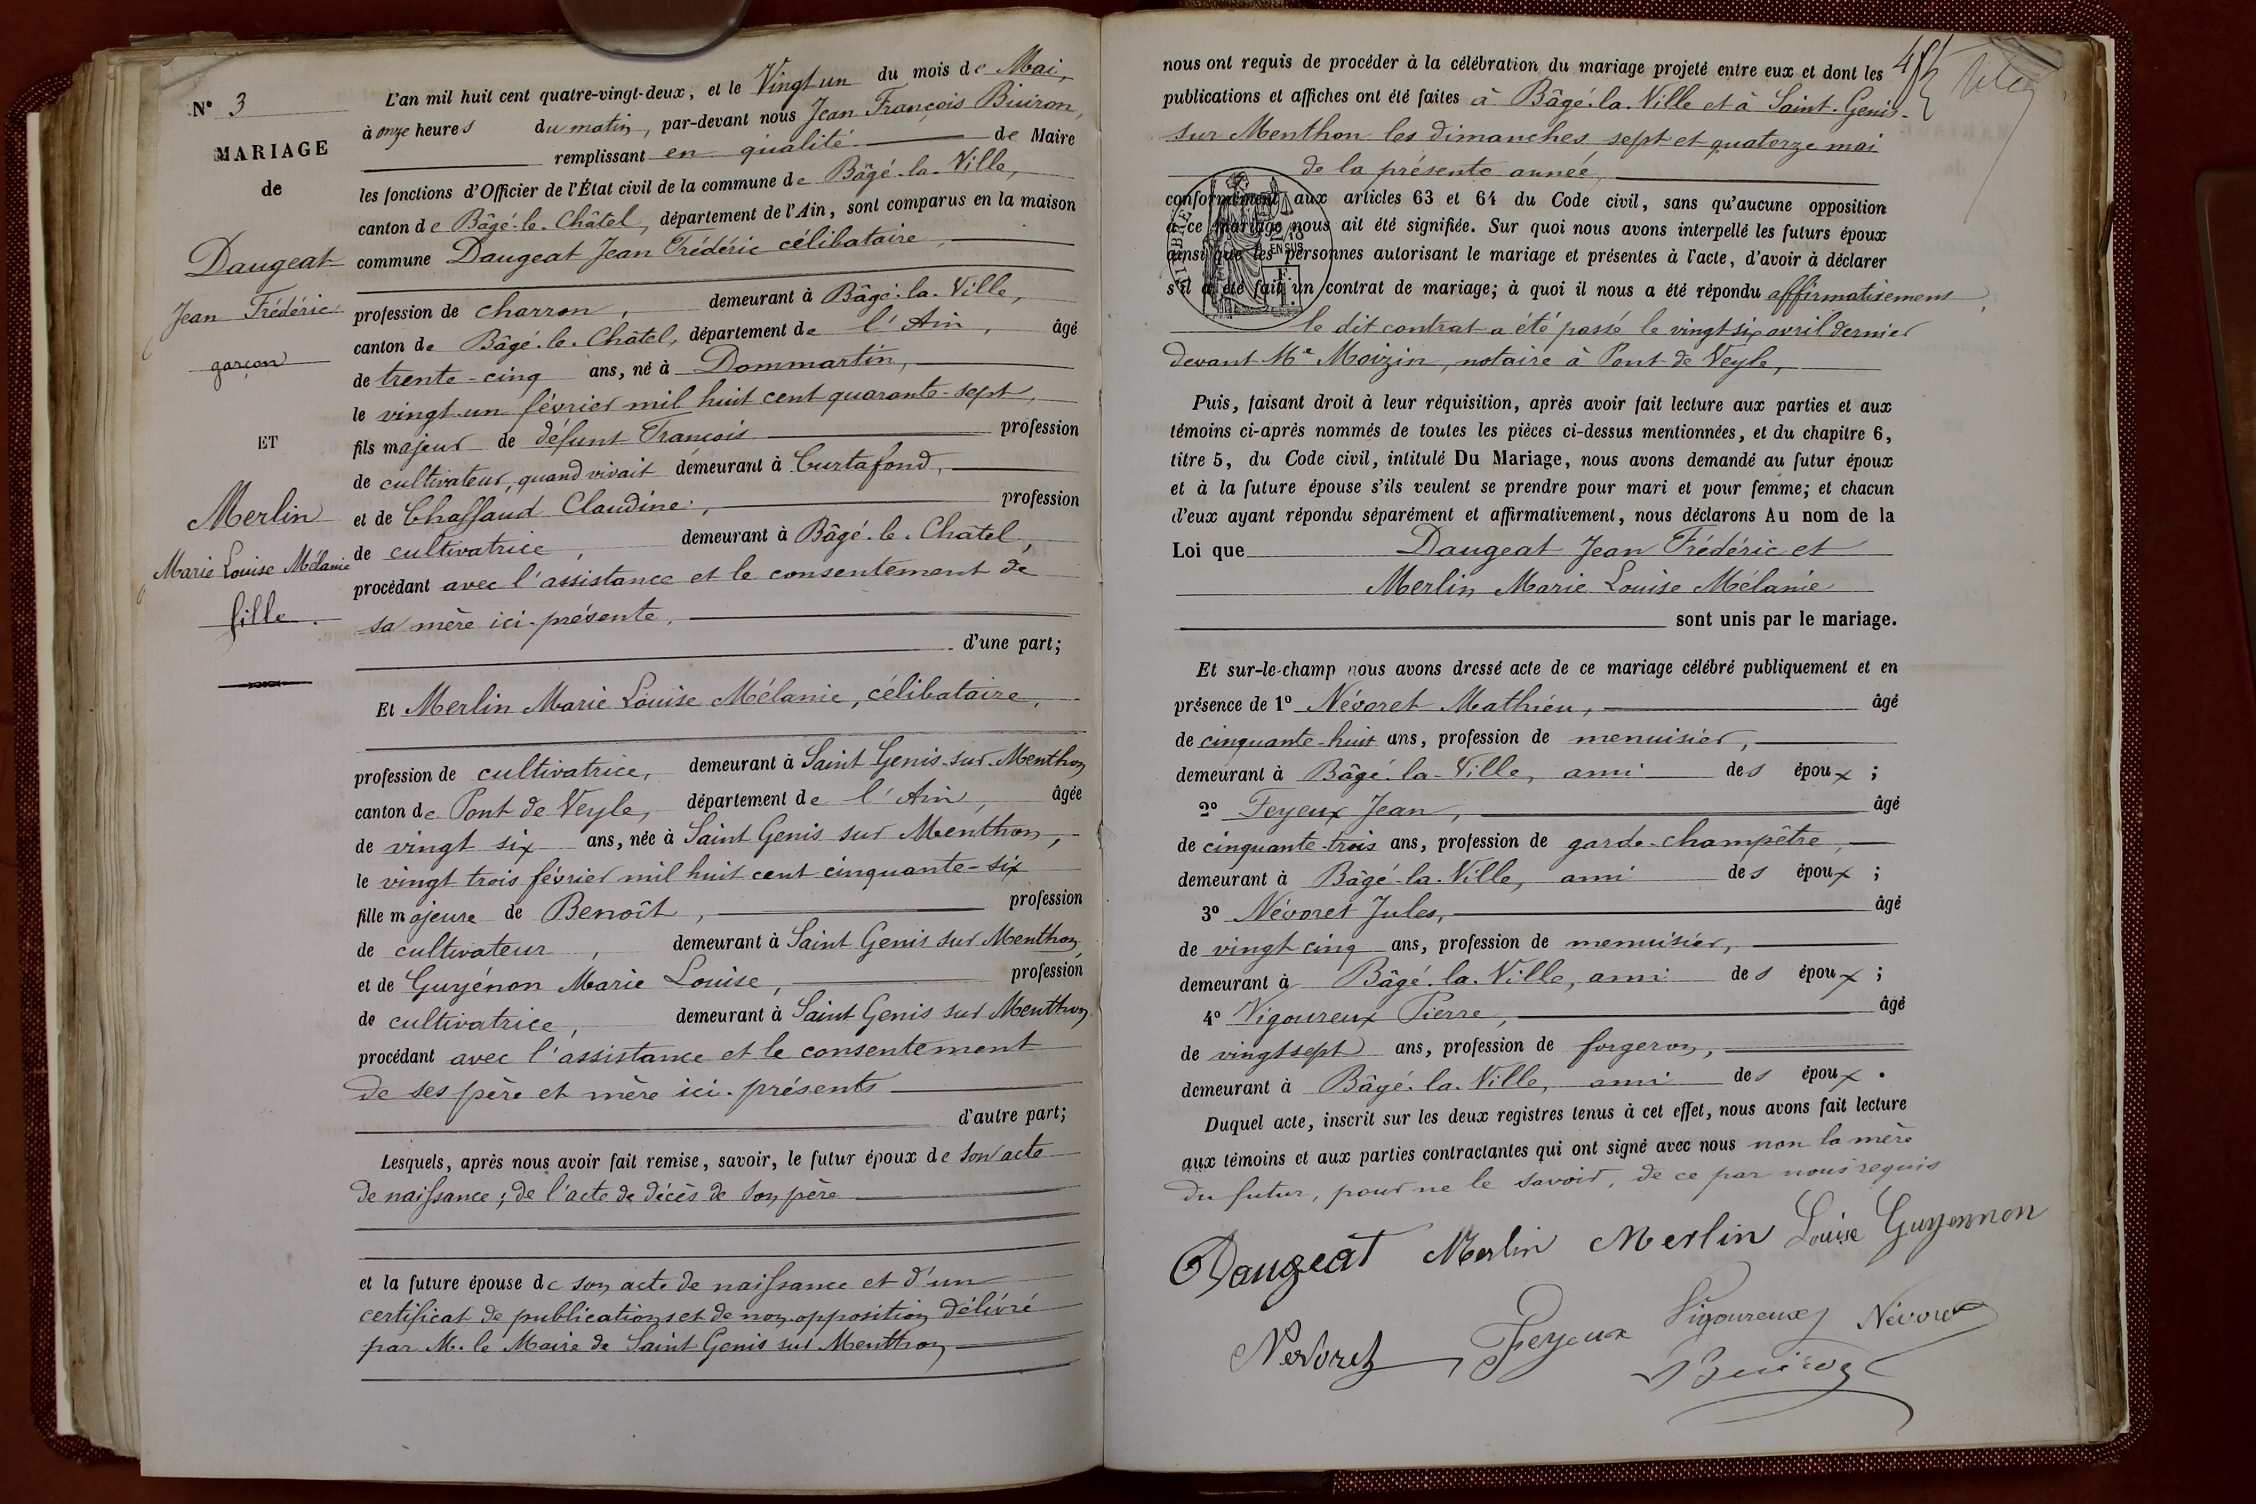 N° 3
MARIAGE
de
Daugeat
Jean Frédéric
garçon
ET
Merlin
Marie Louise Mélanie
fille.
L'an mil huit cent quatre-vingt-deux, et le Vingt un du mois de Mai,
à onze heures du matin, par-devant nous Jean François Buiron,
remplissant en qualité de Maire
les fonctions d'Officier de l'État civil de la commune de Bâgé-la-Ville,
canton de Bâgé-le-Châtel, département de l'Ain, sont comparus en la maison
commune Daugeat Jean Frédéric célibataire,
profession de charron, demeurant à Bâgé-la-Ville,
canton de Bâgé-le-Châtel, département de l'Ain, âgé
de trente-cinq ans, né à Dommartin,
le vingt-un février mil huit cent quarante-sept,
fils majeur de défunt François profession
de cultivateur, quand vivait demeurant à Curtafond,
et de Chaffaud Claudine, profession
de cultivatrice, demeurant à Bâgé-le-Châtel,
procédant avec l'assistance et le consentement de
sa mère ici-présente,
d'une part;
Et Merlin Marie Louise Mélanie, célibataire,
profession de cultivatrice, demeurant à Saint Genis-sur-Menthon
canton de Pont de Veyle, département de l'Ain, âgée
de vingt six ans, née à Saint Genis sur Menthon,
le vingt trois février mil huit cent cinquante-six
fille majeure de Benoît, profession
de cultivateur, demeurant à Saint Genis sur Menthon
et de Guyénon Marie Louise, profession
de cultivatrice, demeurant à Saint Genis sur Menthon
procédant avec l'assistance et le consentement
de ses père et mère ici-présents
d'autre part;
Lesquels, après nous avoir fait remise, savoir, le futur époux de son acte
de naissance; de l'acte de décès de son père
et la future épouse de son acte de naissance et d'un
certificat de publications et de non opposition délivré
par M. le Maire de Saint Genis sur Menthon
nous ont requis de procéder à la célébration du mariage projeté entre eux et dont les
publications et affiches ont été faites à Bâgé-la-Ville et à Saint-Genis-
sur Menthon les dimanches sept et quatorze mai
de la présente année,
conformément aux articles 63 et 64 du Code civil, sans qu'aucune opposition
à ce mariage nous ait été signifiée. Sur quoi nous avons interpellé les futurs époux
ainsi que les personnes autorisant le mariage et présentes à l'acte, d'avoir à déclarer
s'il a été fait un contrat de mariage; à quoi il nous a été répondu affirmativement
le dit contrat a été passé le vingt six avril dernier
devant Me Moizin, notaire à Pont de Veyle,
Puis, faisant droit à leur réquisition, après avoir fait lecture aux parties et aux
témoins ci-après nommés de toutes les pièces ci-dessus mentionnées, et du chapitre 6,
titre 5, du Code civil, intitulé Du Mariage, nous avons demandé au futur époux
et à la future épouse s'ils veulent se prendre pour mari et pour femme; et chacun
d'eux ayant répondu séparément et affirmativement, nous déclarons Au nom de la
Loi que Daugeat Jean Frédéric et
Merlin Marie Louise Mélanie
sont unis par le mariage.
Et sur-le-champ nous avons dressé acte de ce mariage célébré publiquement et en
présence de 1° Névoret Mathieu, âgé
de cinquante-huit ans, profession de menuisier,
demeurant à Bâgé-la-Ville, ami des époux;
2° Feyeux Jean, âgé
de cinquante-trois ans, profession de garde-champêtre,
demeurant à Bâgé-la-Ville, ami des époux;
3° Névoret Jules, âgé
de vingt cinq ans, profession de menuisier,
demeurant à Bâgé-la-Ville, ami des époux;
4° Vigoureux Pierre, âgé
de vingt sept ans, profession de forgeron,
demeurant à Bâgé-la-Ville, ami des époux.
Duquel acte, inscrit sur les deux registres tenus à cet effet, nous avons fait lecture
aux témoins et aux parties contractantes qui ont signé avec nous non la mère
du futur, pour ne le savoir, de ce par nous requis
Daugeat Merlin Merlin Louise Guyennon
Nevoret Feyeux Vigoureux Névoret
Buiron